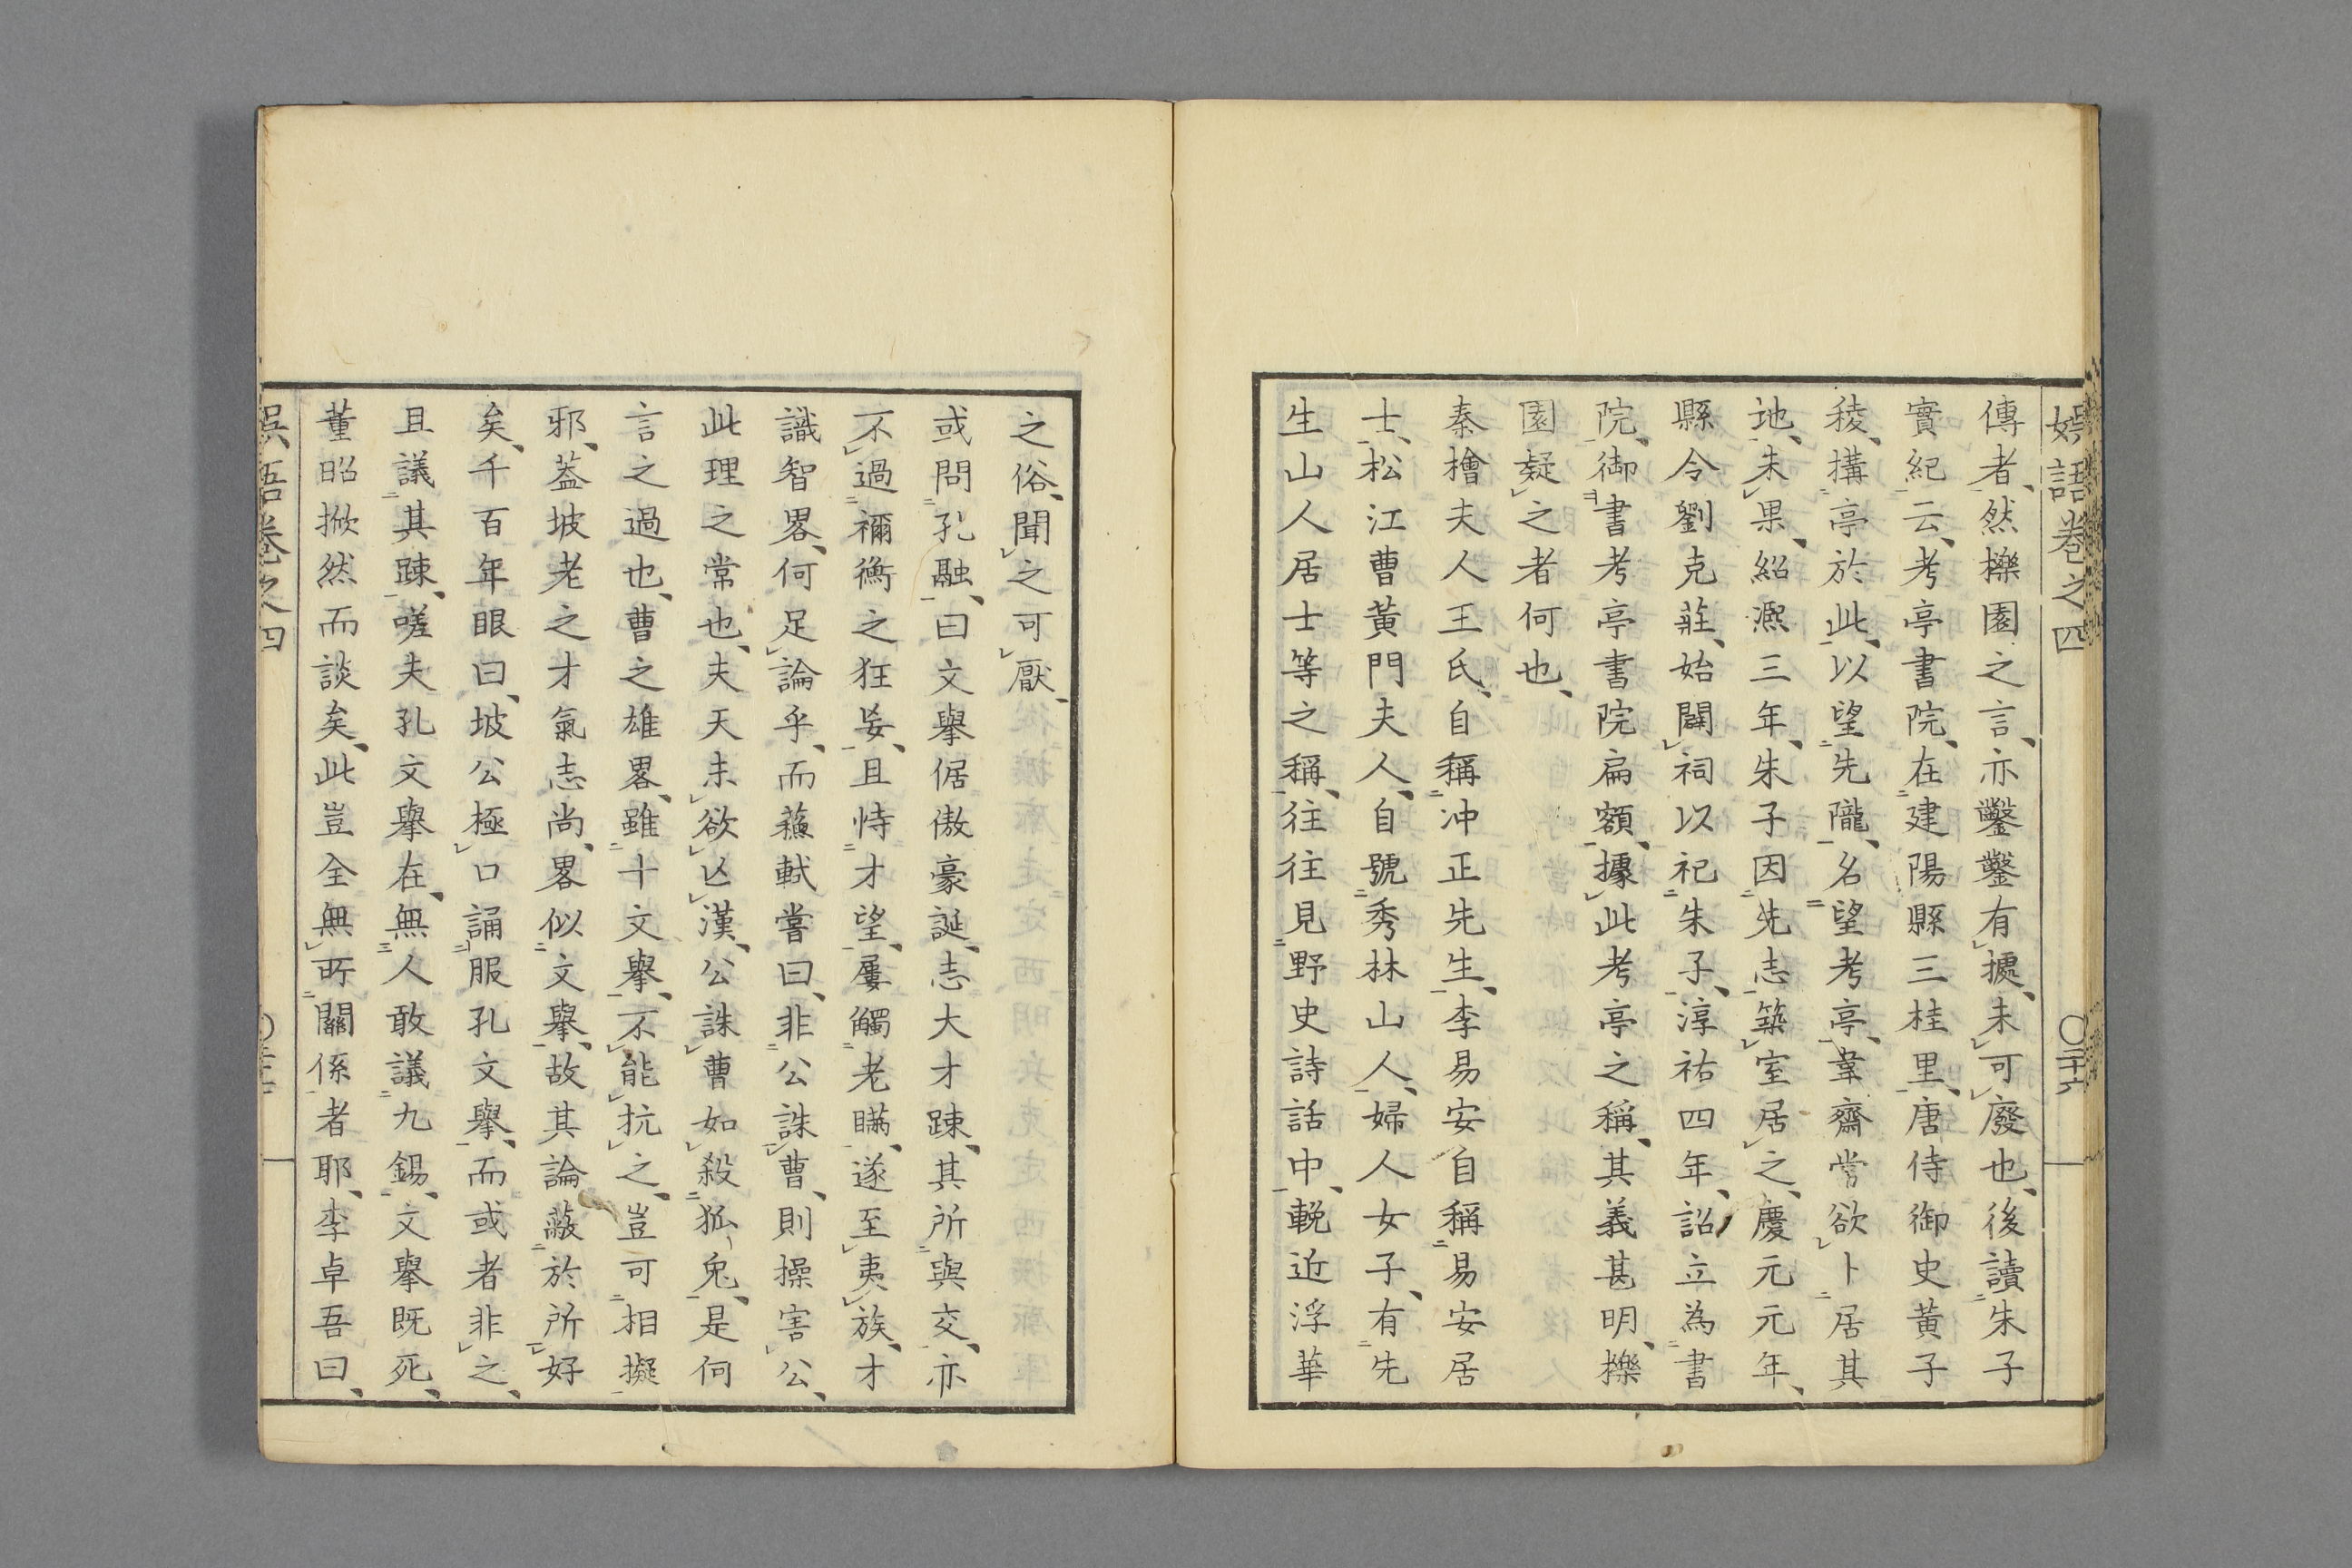 娯語卷之四 〇二十六
傳者、然櫟園之言、亦鑿鑿有據、未可廢也、後讀朱子
實紀云、考亭書院、在建陽縣三桂里、唐侍御史黃子
稜、搆亭於此、以望先隴、名望考亭、韋齋嘗欲卜居其
地、未果、紹熈三年、朱子因先志築室居之、慶元元年、
縣令劉克莊、始闢祠以祀朱子、淳祐四年、詔立為書
院、御書考亭書院扁額、據此考亭之稱、其義甚明、櫟
園疑之者何也、
秦檜夫人王氏、自稱冲正先生、李易安自稱易安居
士、松江曹黃門夫人、自號秀林山人、婦人女子、有先
生山人居士等之稱、往往見野史詩話中、輓近浮華
之俗、聞之可厭、
或問孔融、曰文擧倨傲豪誕、志大才踈、其所與交、亦
不過禰衡之狂妄、且恃才望、屢觸老瞞、遂至夷族、才
識智畧、何足論乎、而蘓軾嘗曰、非公誅曹、則操害公、
此理之常也、夫天未欲亾漢、公誅曹如殺狐兔、是何
言之過也、曹之雄畧、雖十文擧、不能抗之、豈可相擬
邪、葢坡老之才氣志尚、畧似文擧、故其論蔽於所好
矣、千百年眼曰、坡公極口誦服孔文擧、而或者非之、
且議其踈、嗟夫孔文擧在、無人敢議九錫、文擧既死、
董昭掀然而談矣、此豈全無所關係者耶、李卓吾曰、
娯語卷之四